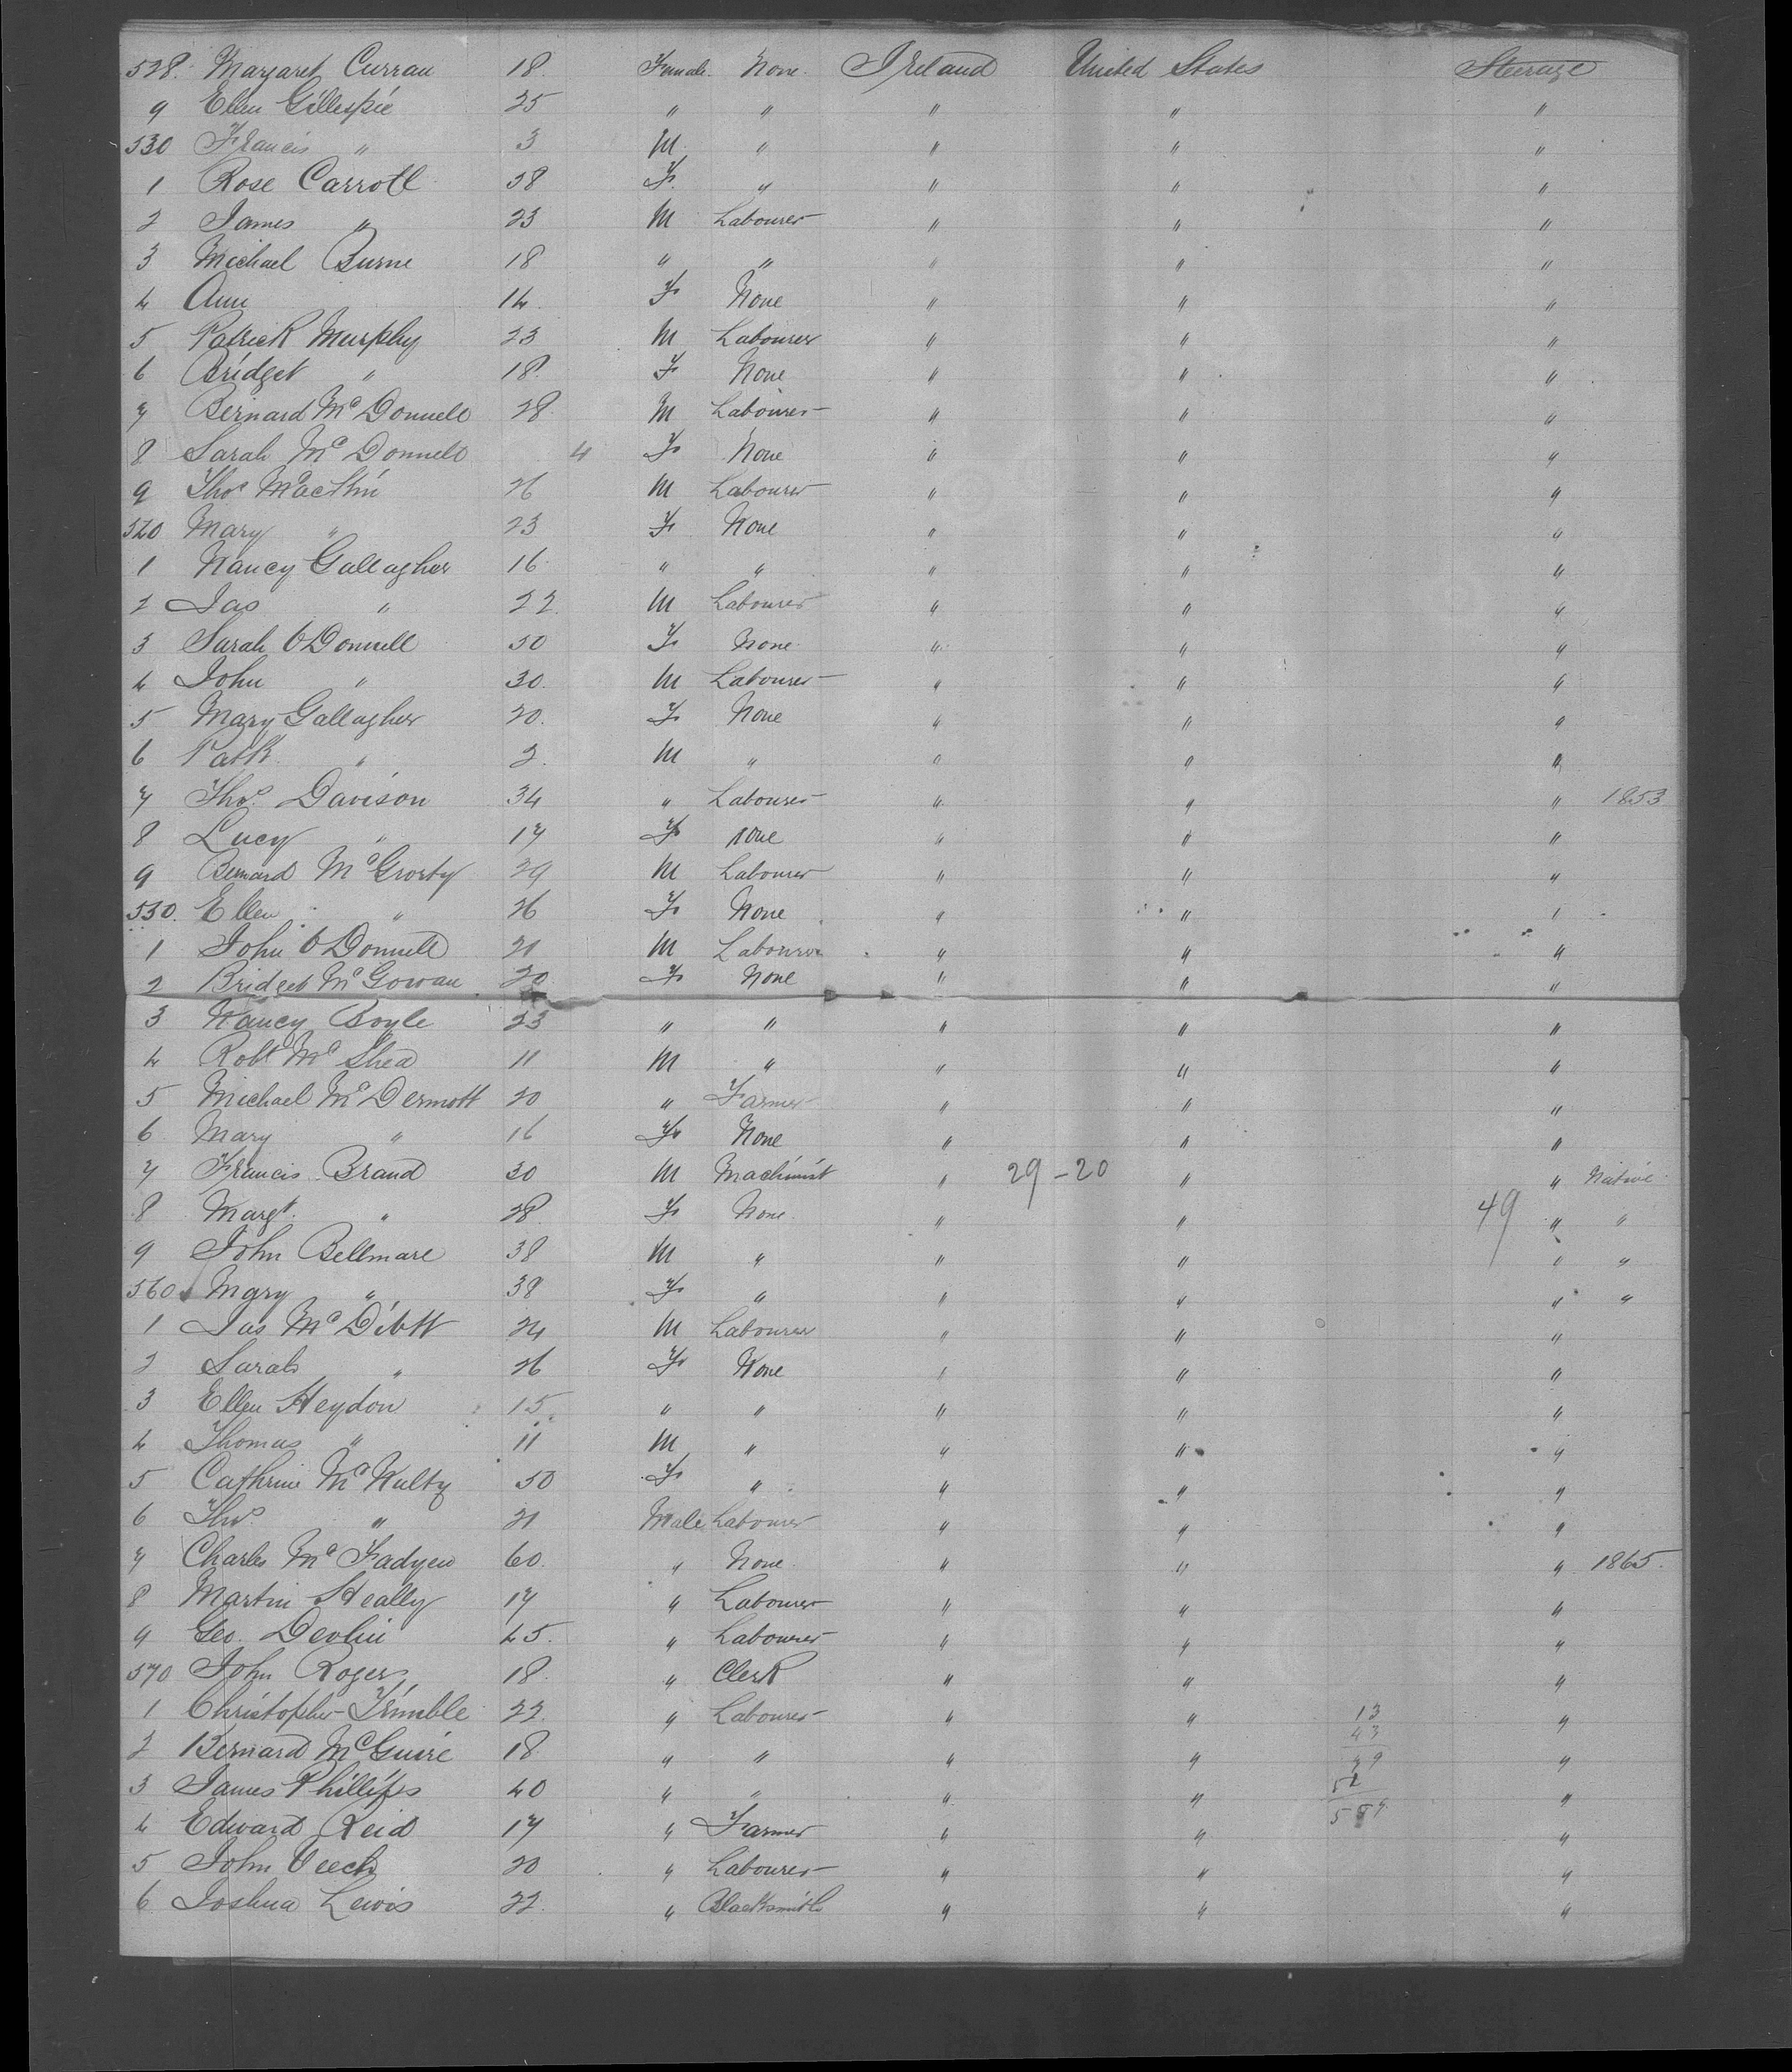 528. Margaret Curran 18. Female. None. Ireland United States Steerage
9 Ellen Gillespie 25 " " " " "
530 Francis " 3 M " " " "
1 Rose Carroll 38 F. " " " "
2 James " 23 M Labourer " " "
3 Michael Burne 18 " " " " "
4 Ann 14. F None " " "
5 Patrick Murphy 23 M Labourer " " "
6 Bridget " 18. F None " " "
7 Bernard McDonnell 28 M Labourer " " "
8 Sarah McDonnell 4 F None " " "
9 Thos 26 M Labourer " " "
520 Mary " 23 F None " " "
1 Nancy Gallagher 16 " " " " "
2 Jas " 22. M Labourer " " "
3 Sarah ODonnell 50 F None " " "
4 John " 30. M Labourer " " "
5 Mary Gallagher 20. F None " " "
6 Patk " 2. M " " " "
7 Thos. Davison 34 " Labourer " " " 1853
8 Lucy " 17 F none " " "
9 Bernard McGrorty 29 M Labourer " " "
530. Ellen " 26 F None " " "
1 John ODonnell 21 M Labourer " " "
2 Bridget McGowan 20 F None " " "
3 Nancy Boyle 23 " " " " "
4 Robt McShea 11 M " " " "
5 Michael McDermott 20 " Farmer " " "
6 Mary " 16 F None " " "
7 Francis Brand 30 M Machinist " 29-20 " " Native
8 Margt. " 28 F None " " 49 " "
9 John Bellmare 38 M " " " " "
560 Mary " 38 F " " " " "
1 Jas McDibtt 24 M Labourer " " "
2 Sarah " 26 F None " " "
3 Ellen Heydon 15 " " " " "
4 Thomas " 11 M " " " "
5 Cathrine McNulty 50 F " " " "
6 Thos. " 21 Male Labourer " " "
7 Charles McFadyen 60. " None " " " 1865.
8 Martin Heally 17 " Labourer " " "
9 Geo. Devlin 45. " Labourer " " "
570 John Rogers 18. " Clerk " " "
1 Christopher Trimble 22. " Labourer " " 13 "
43
2 Bernard McGuire 18 " " " " "
3 James Phillips 40 " " " " "
4 Edward Reid 17 " Farmer " " "
5 John Veech 20 " Labourer " " "
6 Joshua Lewis 22. " Blacksmith " " "